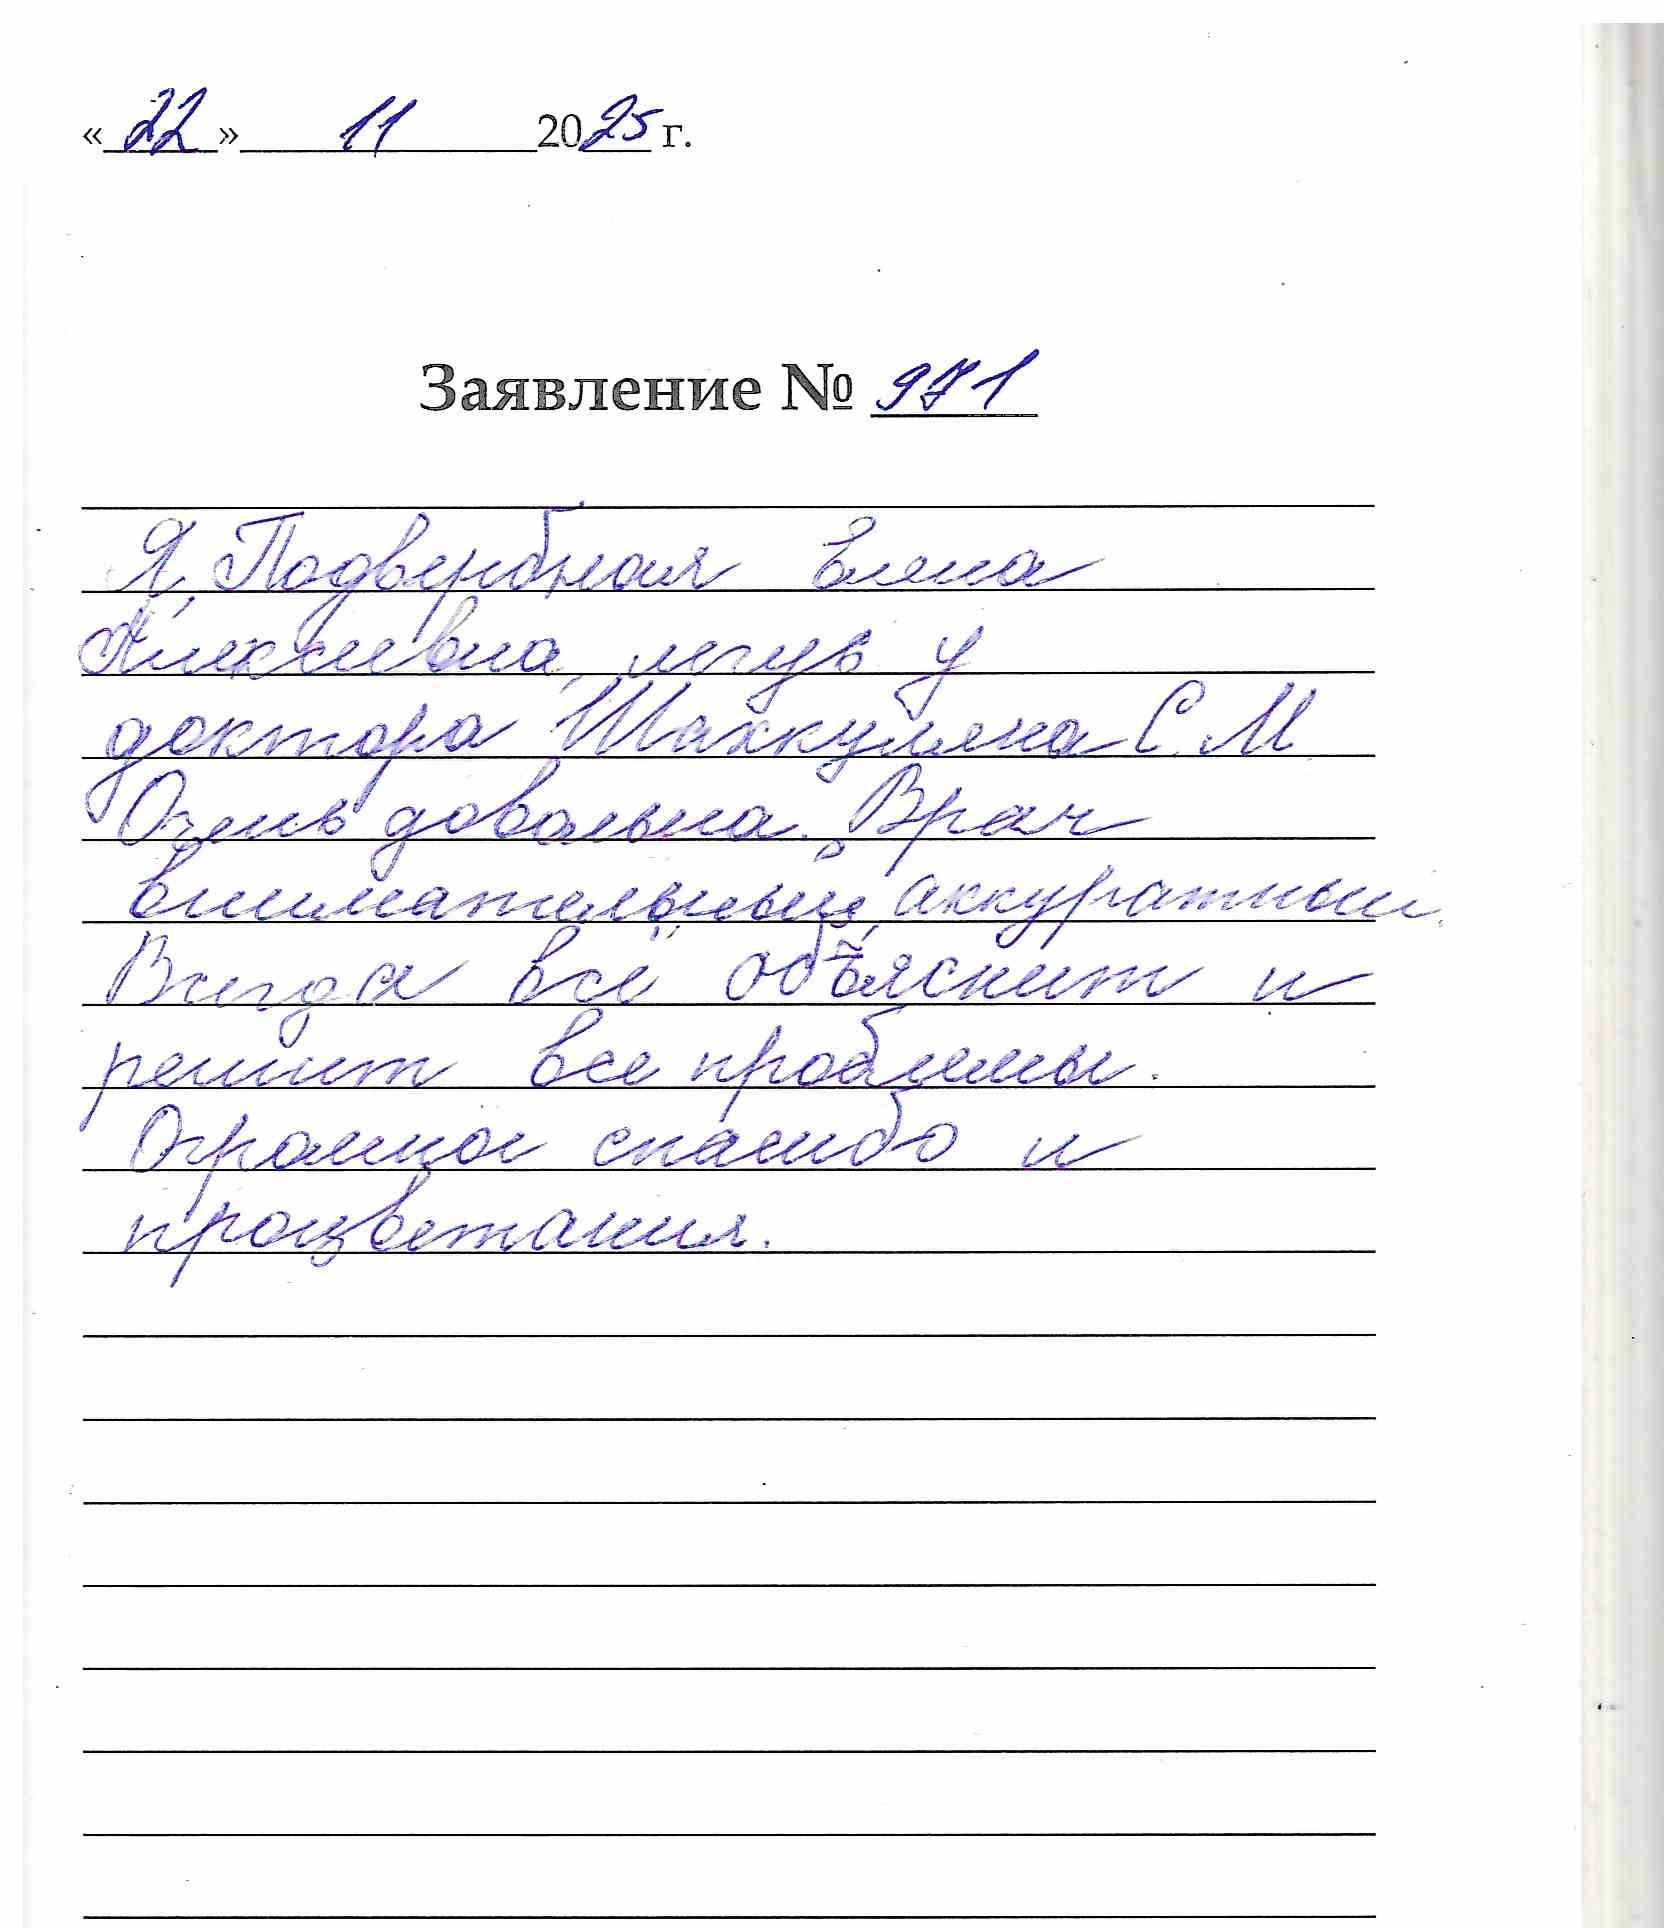 « 22 » 11 2025 г.
Заявление № 971
Я, Подвербная Елена
Алексеевна, лечусь у
доктора Шахкуляна С.М
Очень довольна. Врач
внимательный, аккуратный.
Всегда всё объяснит и
решит все проблемы.
Огромное спасибо и
процветания.